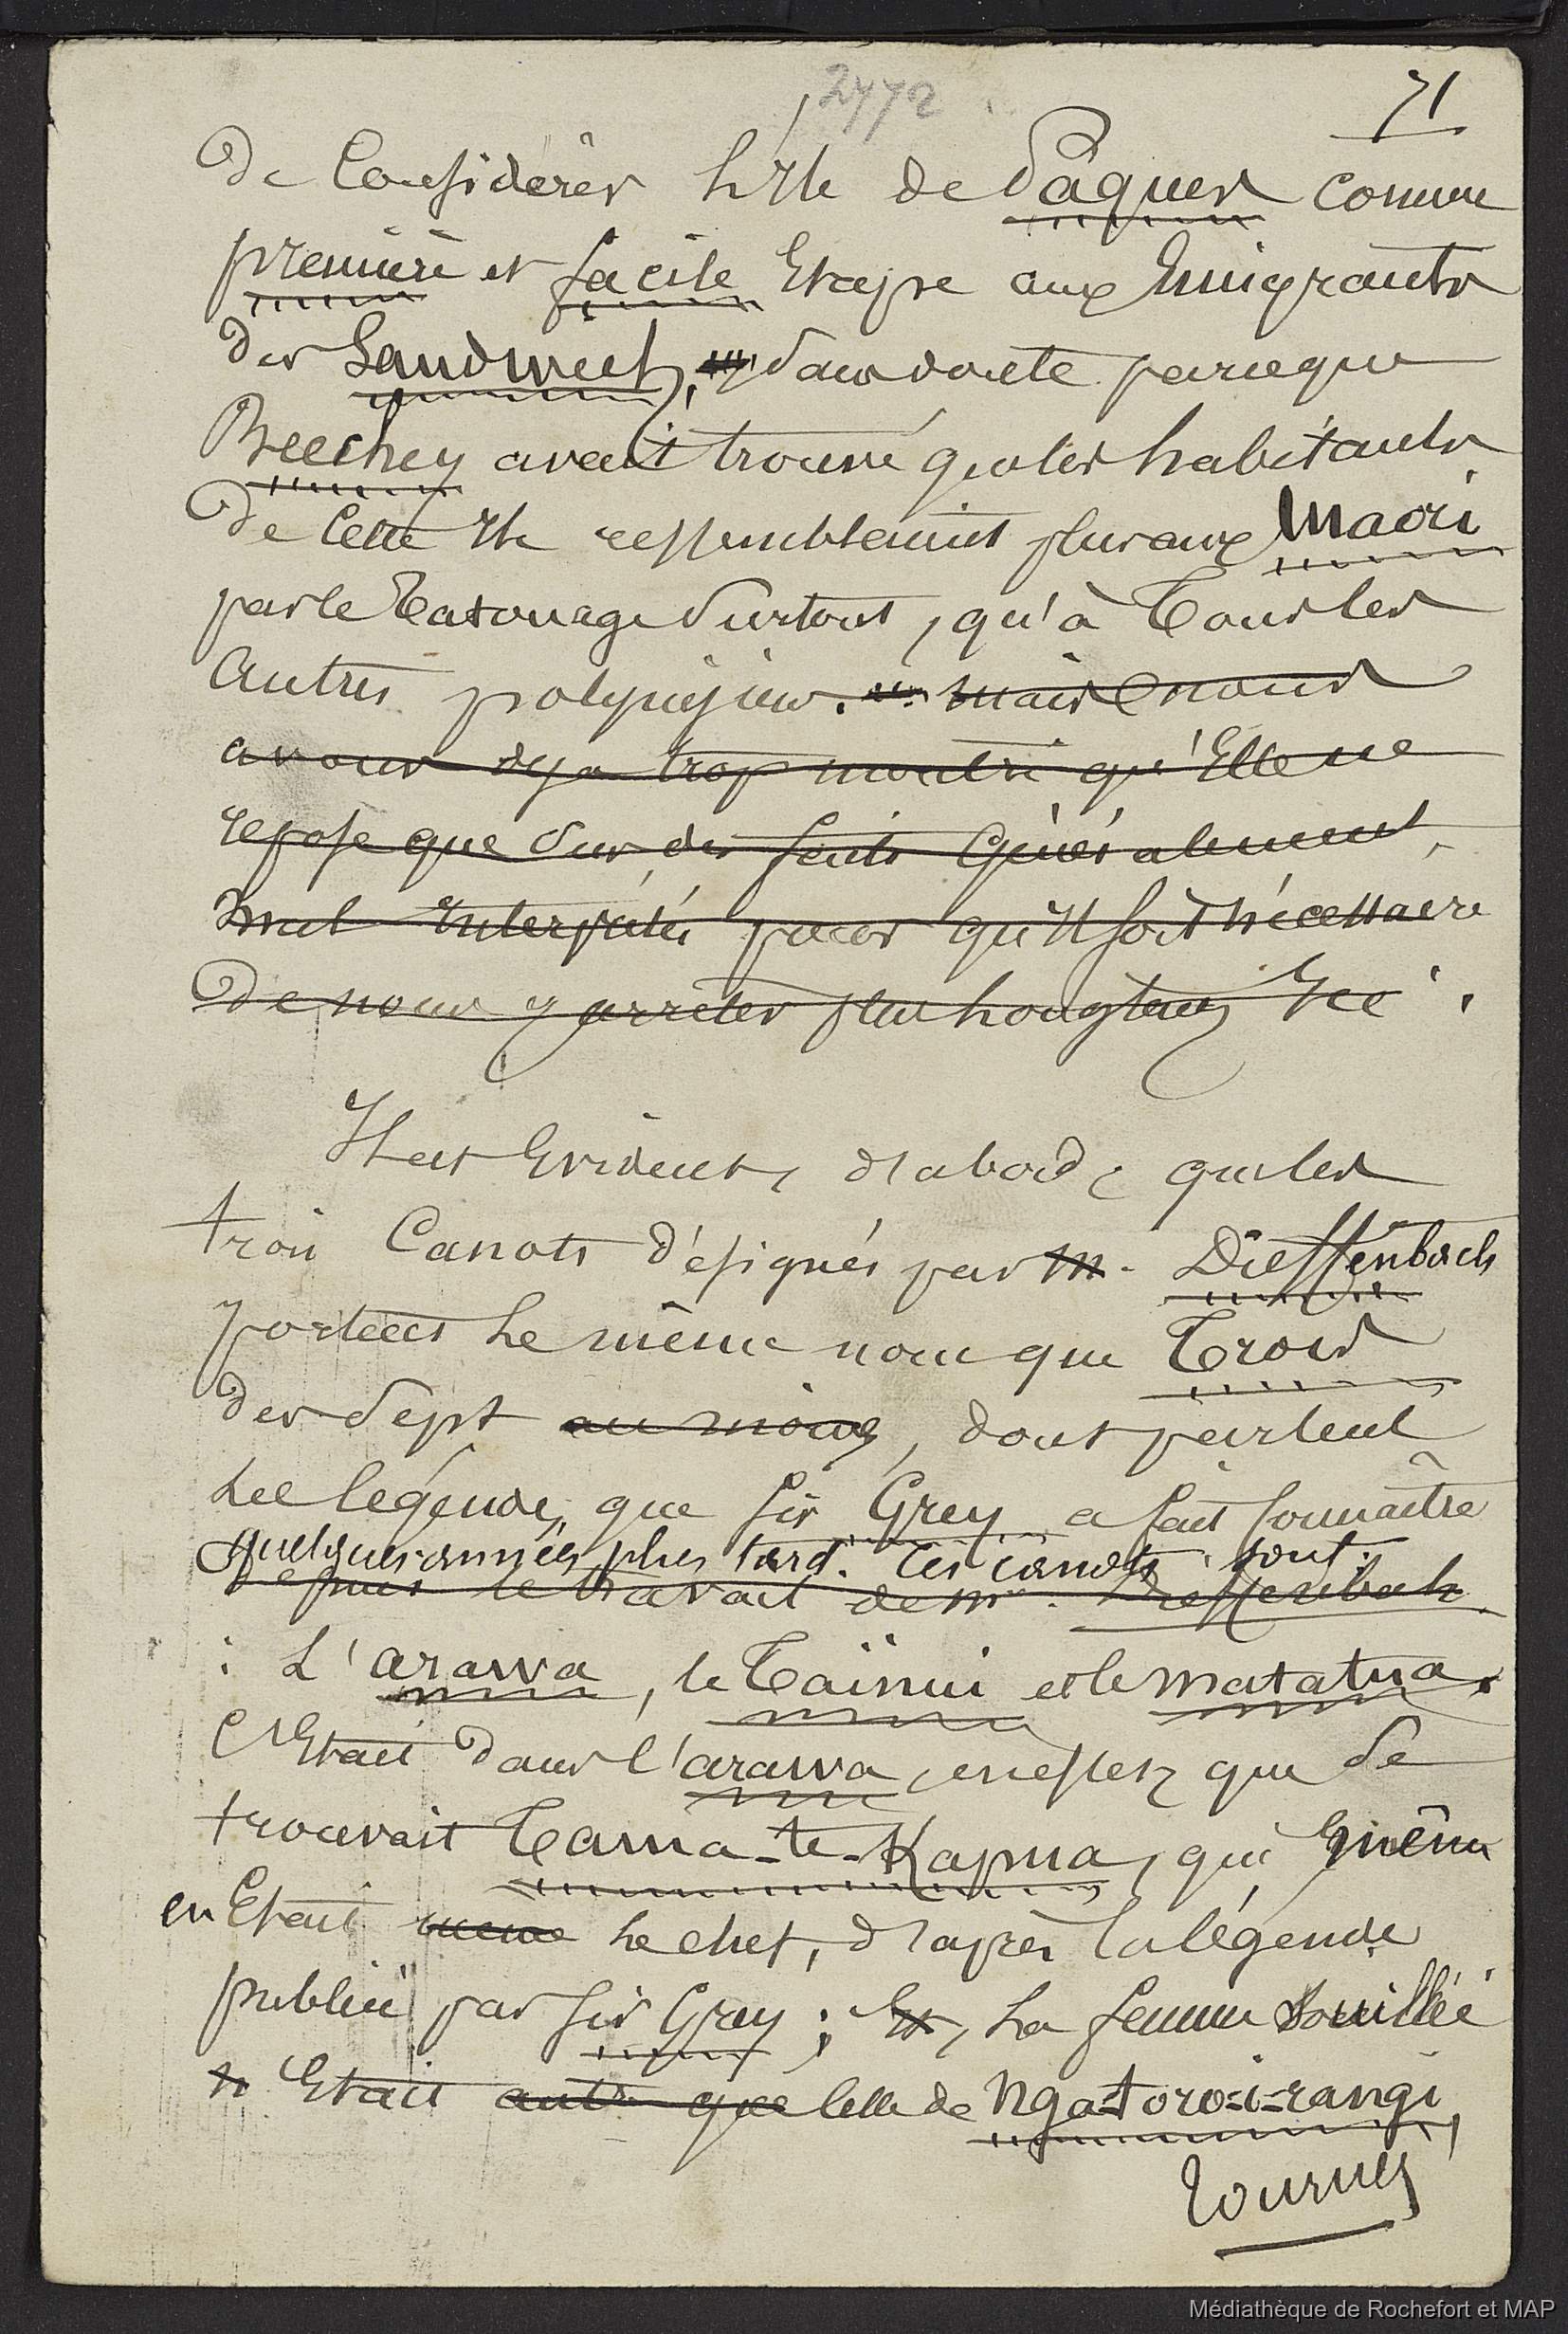 2472
71
de Considérer l'Ile de Pâques comme
première et facile Etape aux Emigrants
des Sandwich, sans doute parceque
Beechey avait trouvé que les habitants
de Cette Ile ressemblaient plus aux Maori
par le Tatouage surtout, qu'à Tous les
Autres polynésiens. mais nous
avons deja trop montré qu'Elle ne
repose que sur des faits Généralement,
mal Interprétés pour qu'Il soit nécessaire
de nous y arrêter plus longtemps Ici.
Il est Evident, d'abord, que les
trois Canots désignés par M. Dieffenbach
portent le même nom que Trois
des Sept au moins, dont parlent
les légendes que Sir Grey a fait Connaître
quelques années plus tard. Ces canots sont
depuis le travail de Mr. Dieffenbach
: L'arawa, le Taïnui et le matatua.
C'Etait dans l'arawa, en effet, que Se
trouvait Tama-te-Kapua, qui même
en Etait même le chef, d'après la légende
publiée par Sir Grey ; Et, la femme souillée
n'Etait autre que Celle de Nga-toro-i-rangi,
Tournez
Médiathèque de Rochefort et MAP